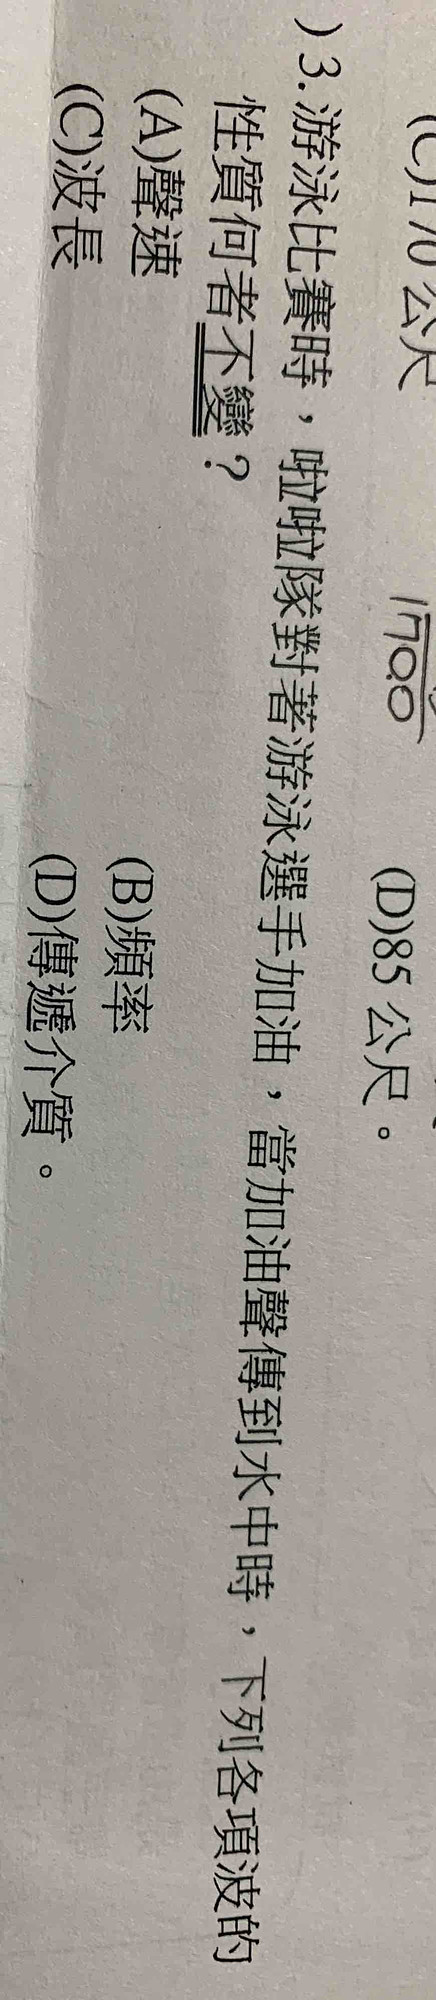 (C)170公尺
1700
(D)85公尺。
)3.游泳比賽時，啦啦隊對著游泳選手加油，當加油聲傳到水中時，下列各項波的
性質何者不變？
(A)聲速
(B)頻率
(C)波長
(D)傳遞介質。